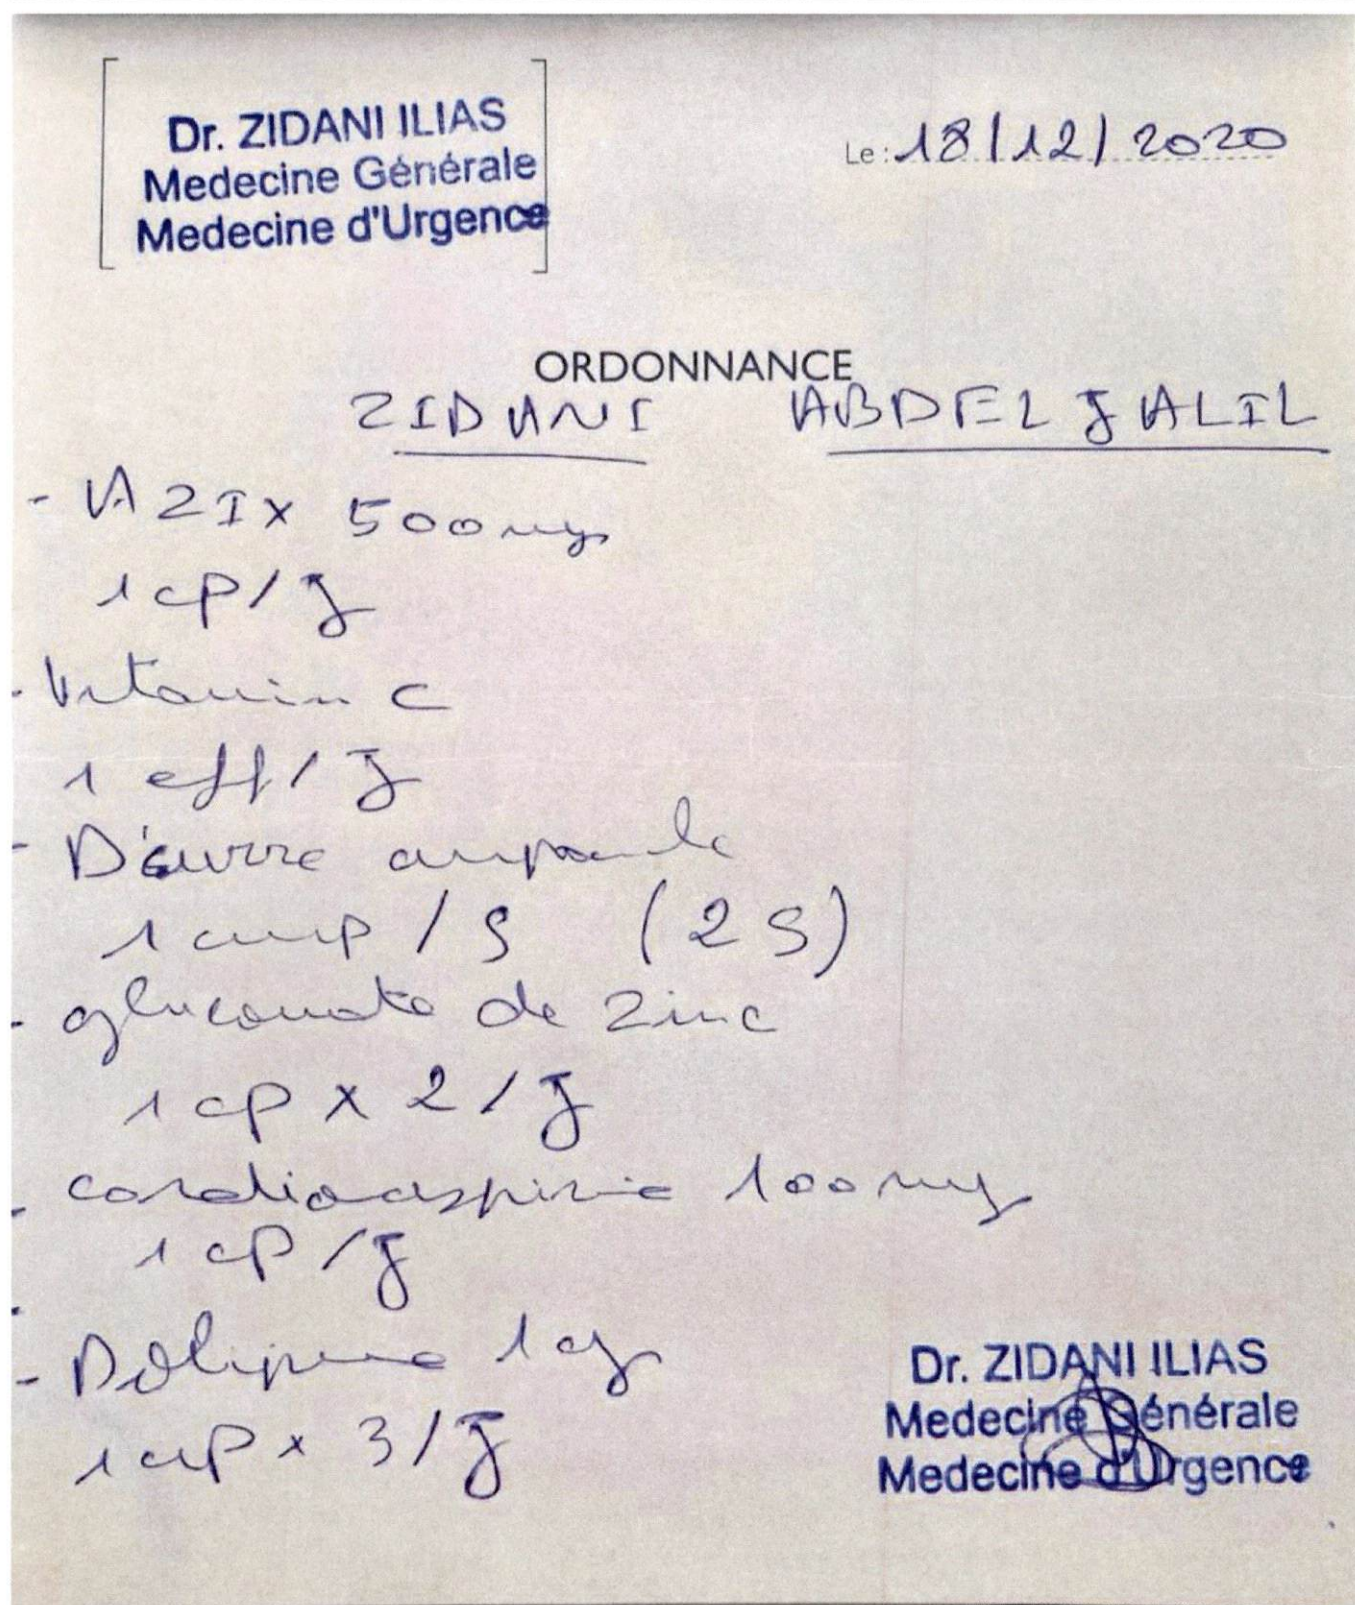 Dr. ZIDANI ILIAS
Medecine Générale
Medecine d'Urgence
Le : 18/12/2020
ORDONNANCE
ZIDANI ABDELJALIL
- AZIX 500mg
1 cp/J
- Vitamin C
1 eff/J
- D'cure ampoule
1 amp / S (2 S)
- gluconate de zinc
1 cp x 2 / J
- cardioaspirine 100mg
1 cp / J
- Doliprane 1 g
1 cp x 3 / J
Dr. ZIDANI ILIAS
Medecine Générale
Medecine d'Urgence